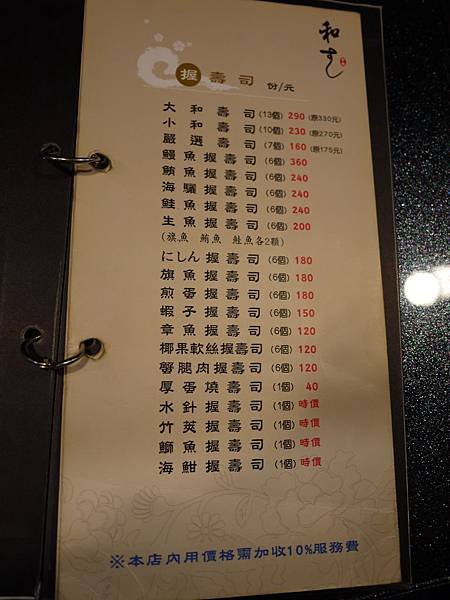 和す
握壽司 份/元
大和壽司(13個) 290 (原330元)
小和壽司(10個) 230 (原270元)
嚴選壽司(7個) 160 (原175元)
鰻魚握壽司(6個) 360
鮪魚握壽司(6個) 240
海鱺握壽司(6個) 240
鮭魚握壽司(6個) 240
生魚握壽司(6個) 200
(旗魚 鮪魚 鮭魚各2顆)
にしん握壽司(6個) 180
旗魚握壽司(6個) 180
煎蛋握壽司(6個) 180
蝦子握壽司(6個) 150
章魚握壽司(6個) 120
椰果軟絲握壽司(6個) 120
臀腿肉握壽司(6個) 120
厚蛋燒壽司(1個) 40
水針握壽司(1個) 時價
竹莢握壽司(1個) 時價
鰤魚握壽司(1個) 時價
海魽握壽司(1個) 時價
※本店內用價格需加收10%服務費